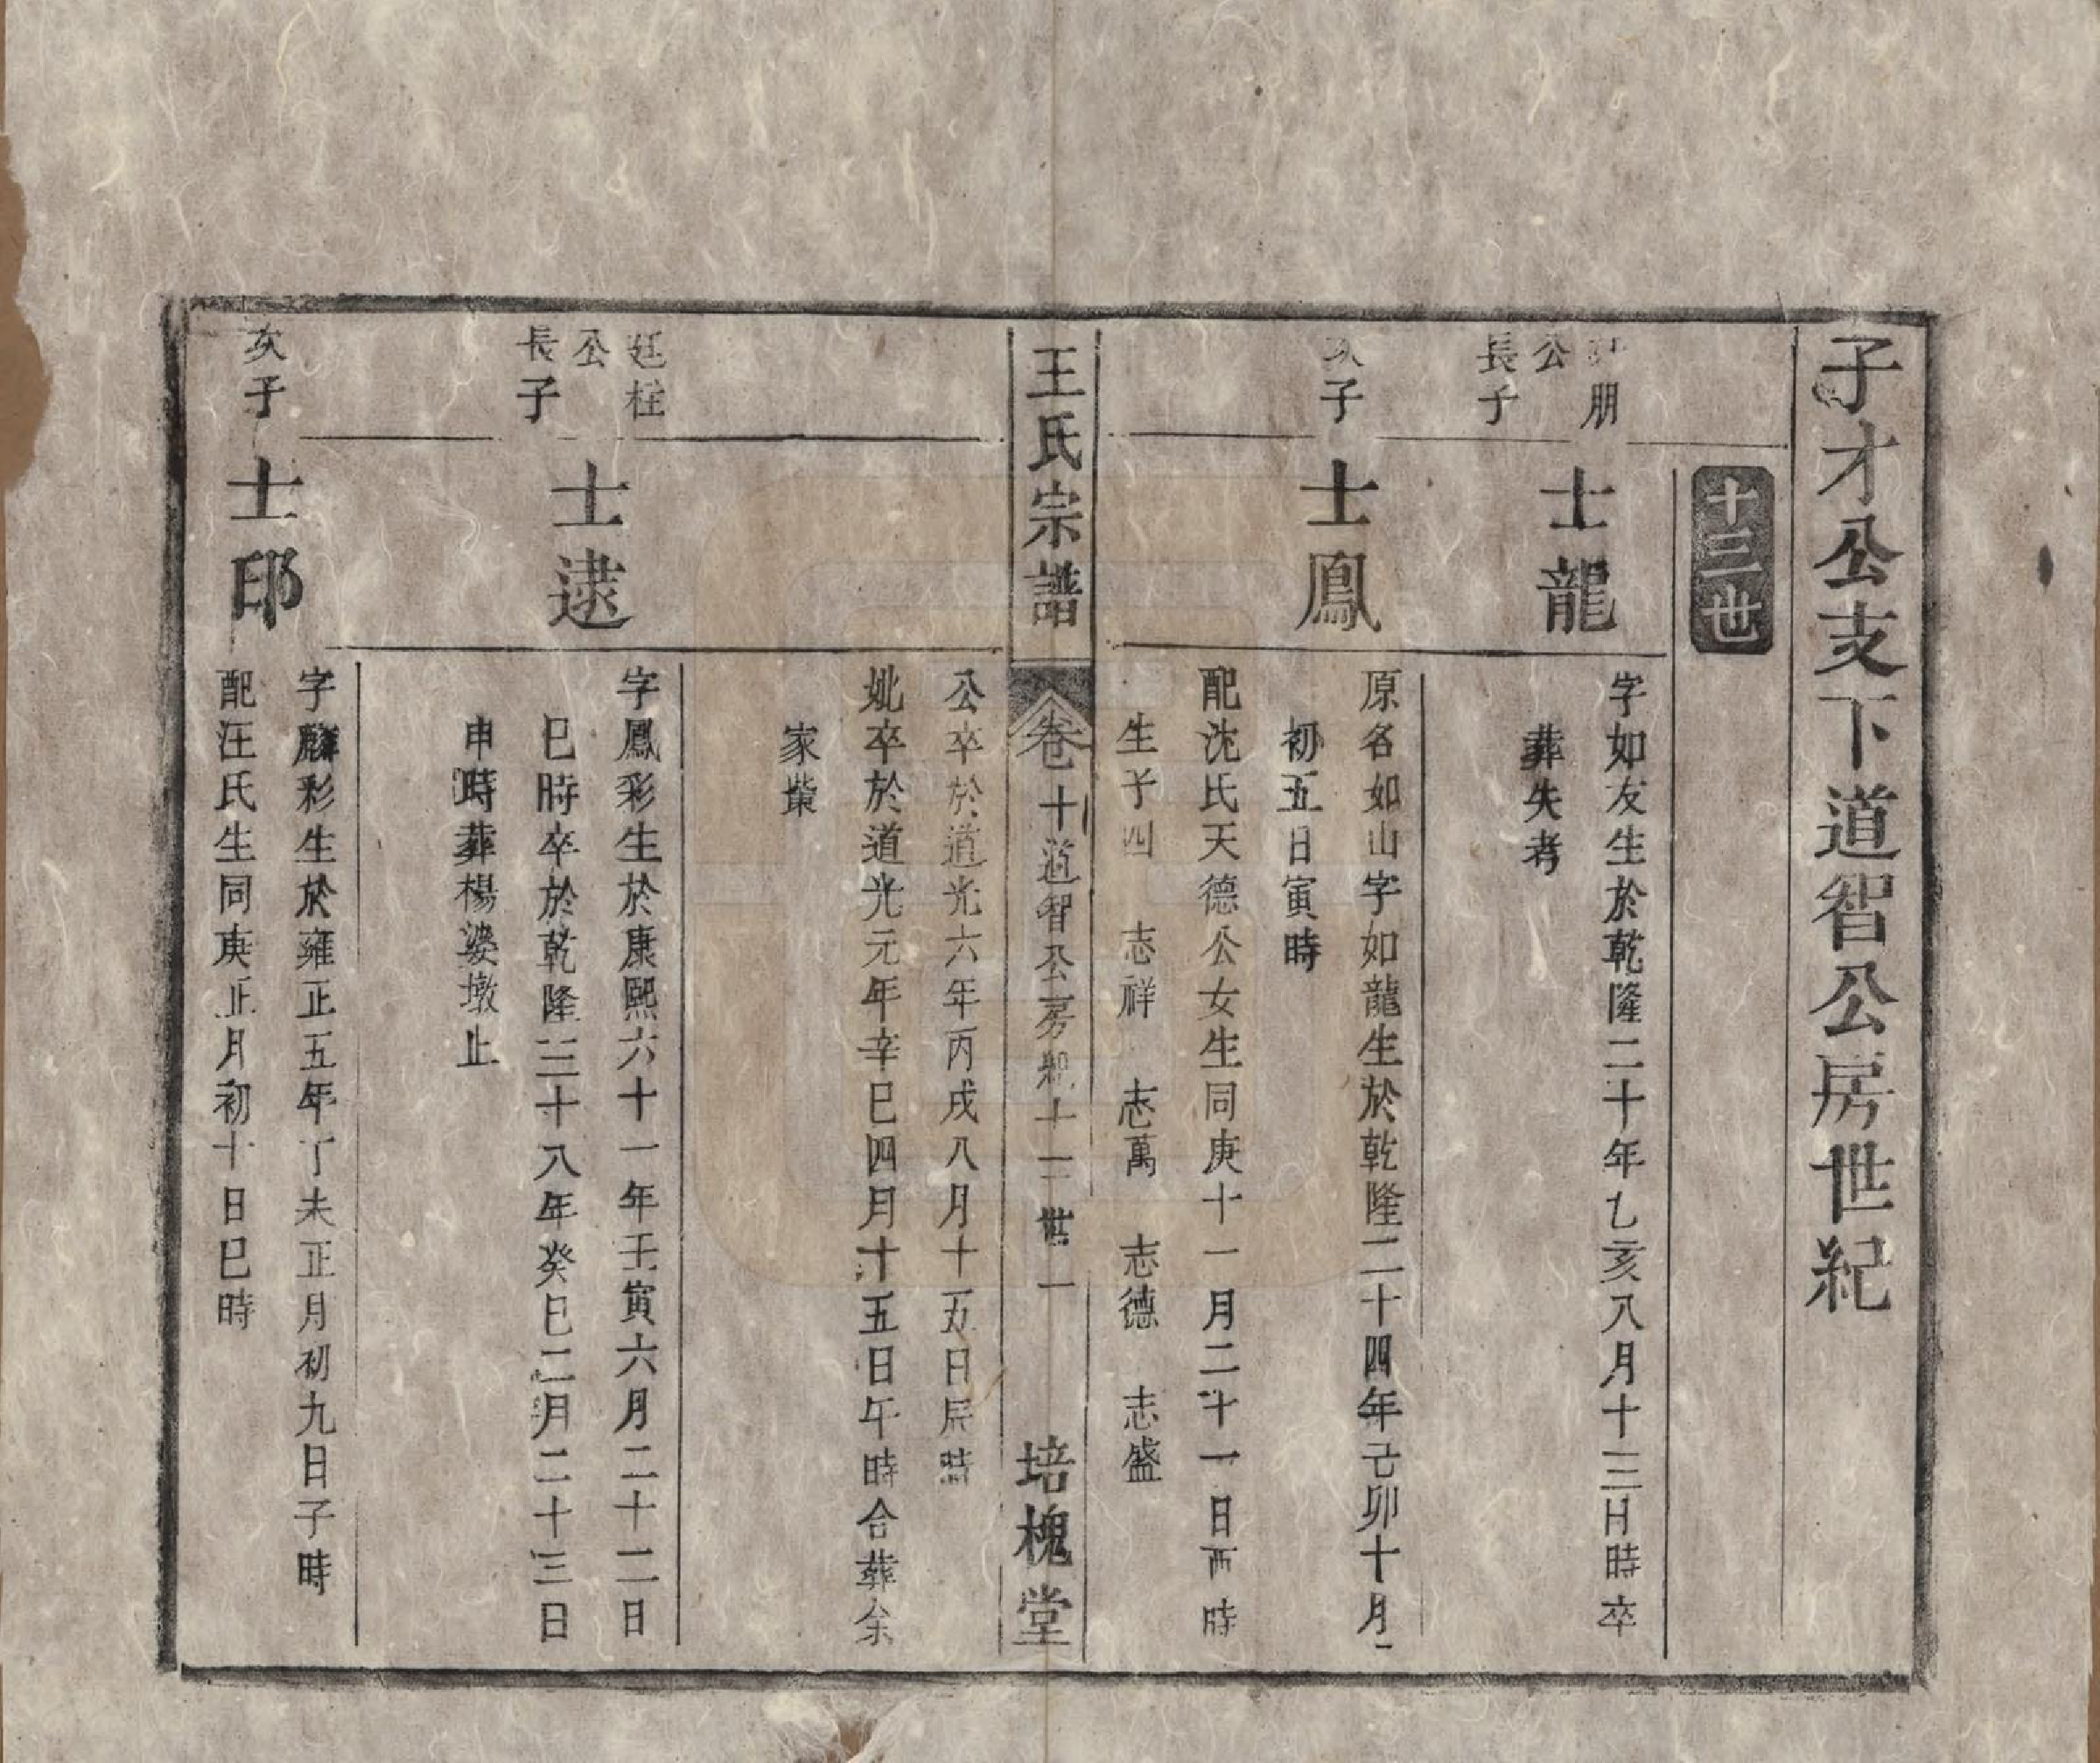 子才公支下道智公房世紀
十三世
朋
公
長子
士龍
字如友生於乾隆二十年乙亥八月十三日時卒
葬失考
次子
士鳳
原名如山字如龍生於乾隆二十四年己卯十月
初五日寅時
配沈氏天德公女生同庚十一月二十一日酉時
生子四 志祥 志萬 志德 志盛
王氏宗譜
卷十道智公房紀十三世一
培槐堂
公卒於道光六年丙戌八月十五日辰時
妣卒於道光元年辛巳四月十五日午時合葬余
家
廷柱
公
長子
士逮
字鳳彩生於康熙六十一年壬寅六月二十二日
巳時卒於乾隆三十八年癸巳二月二十三日
申時葬楊婆墩止
次子
士邸
字麟彩生於雍正五年丁未正月初九日子時
配汪氏生同庚正月初十日巳時